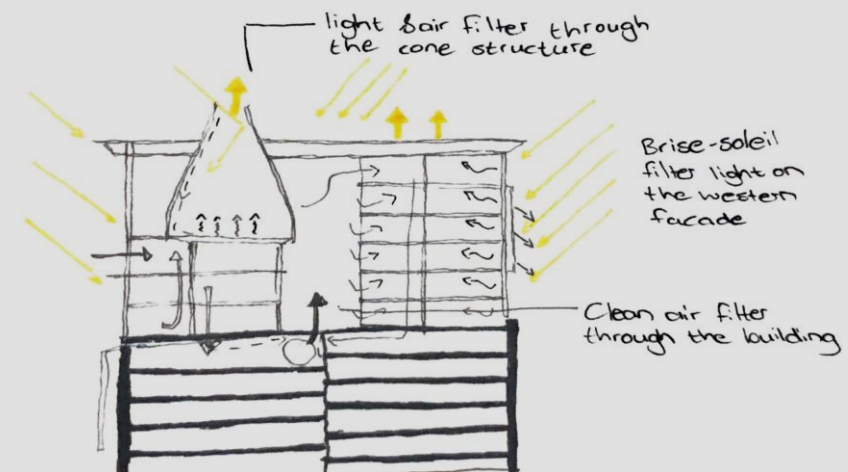 light & air filter through
the cone structure
Brise-soleil
filter light on
the western
facade
Clean air filter
through the building